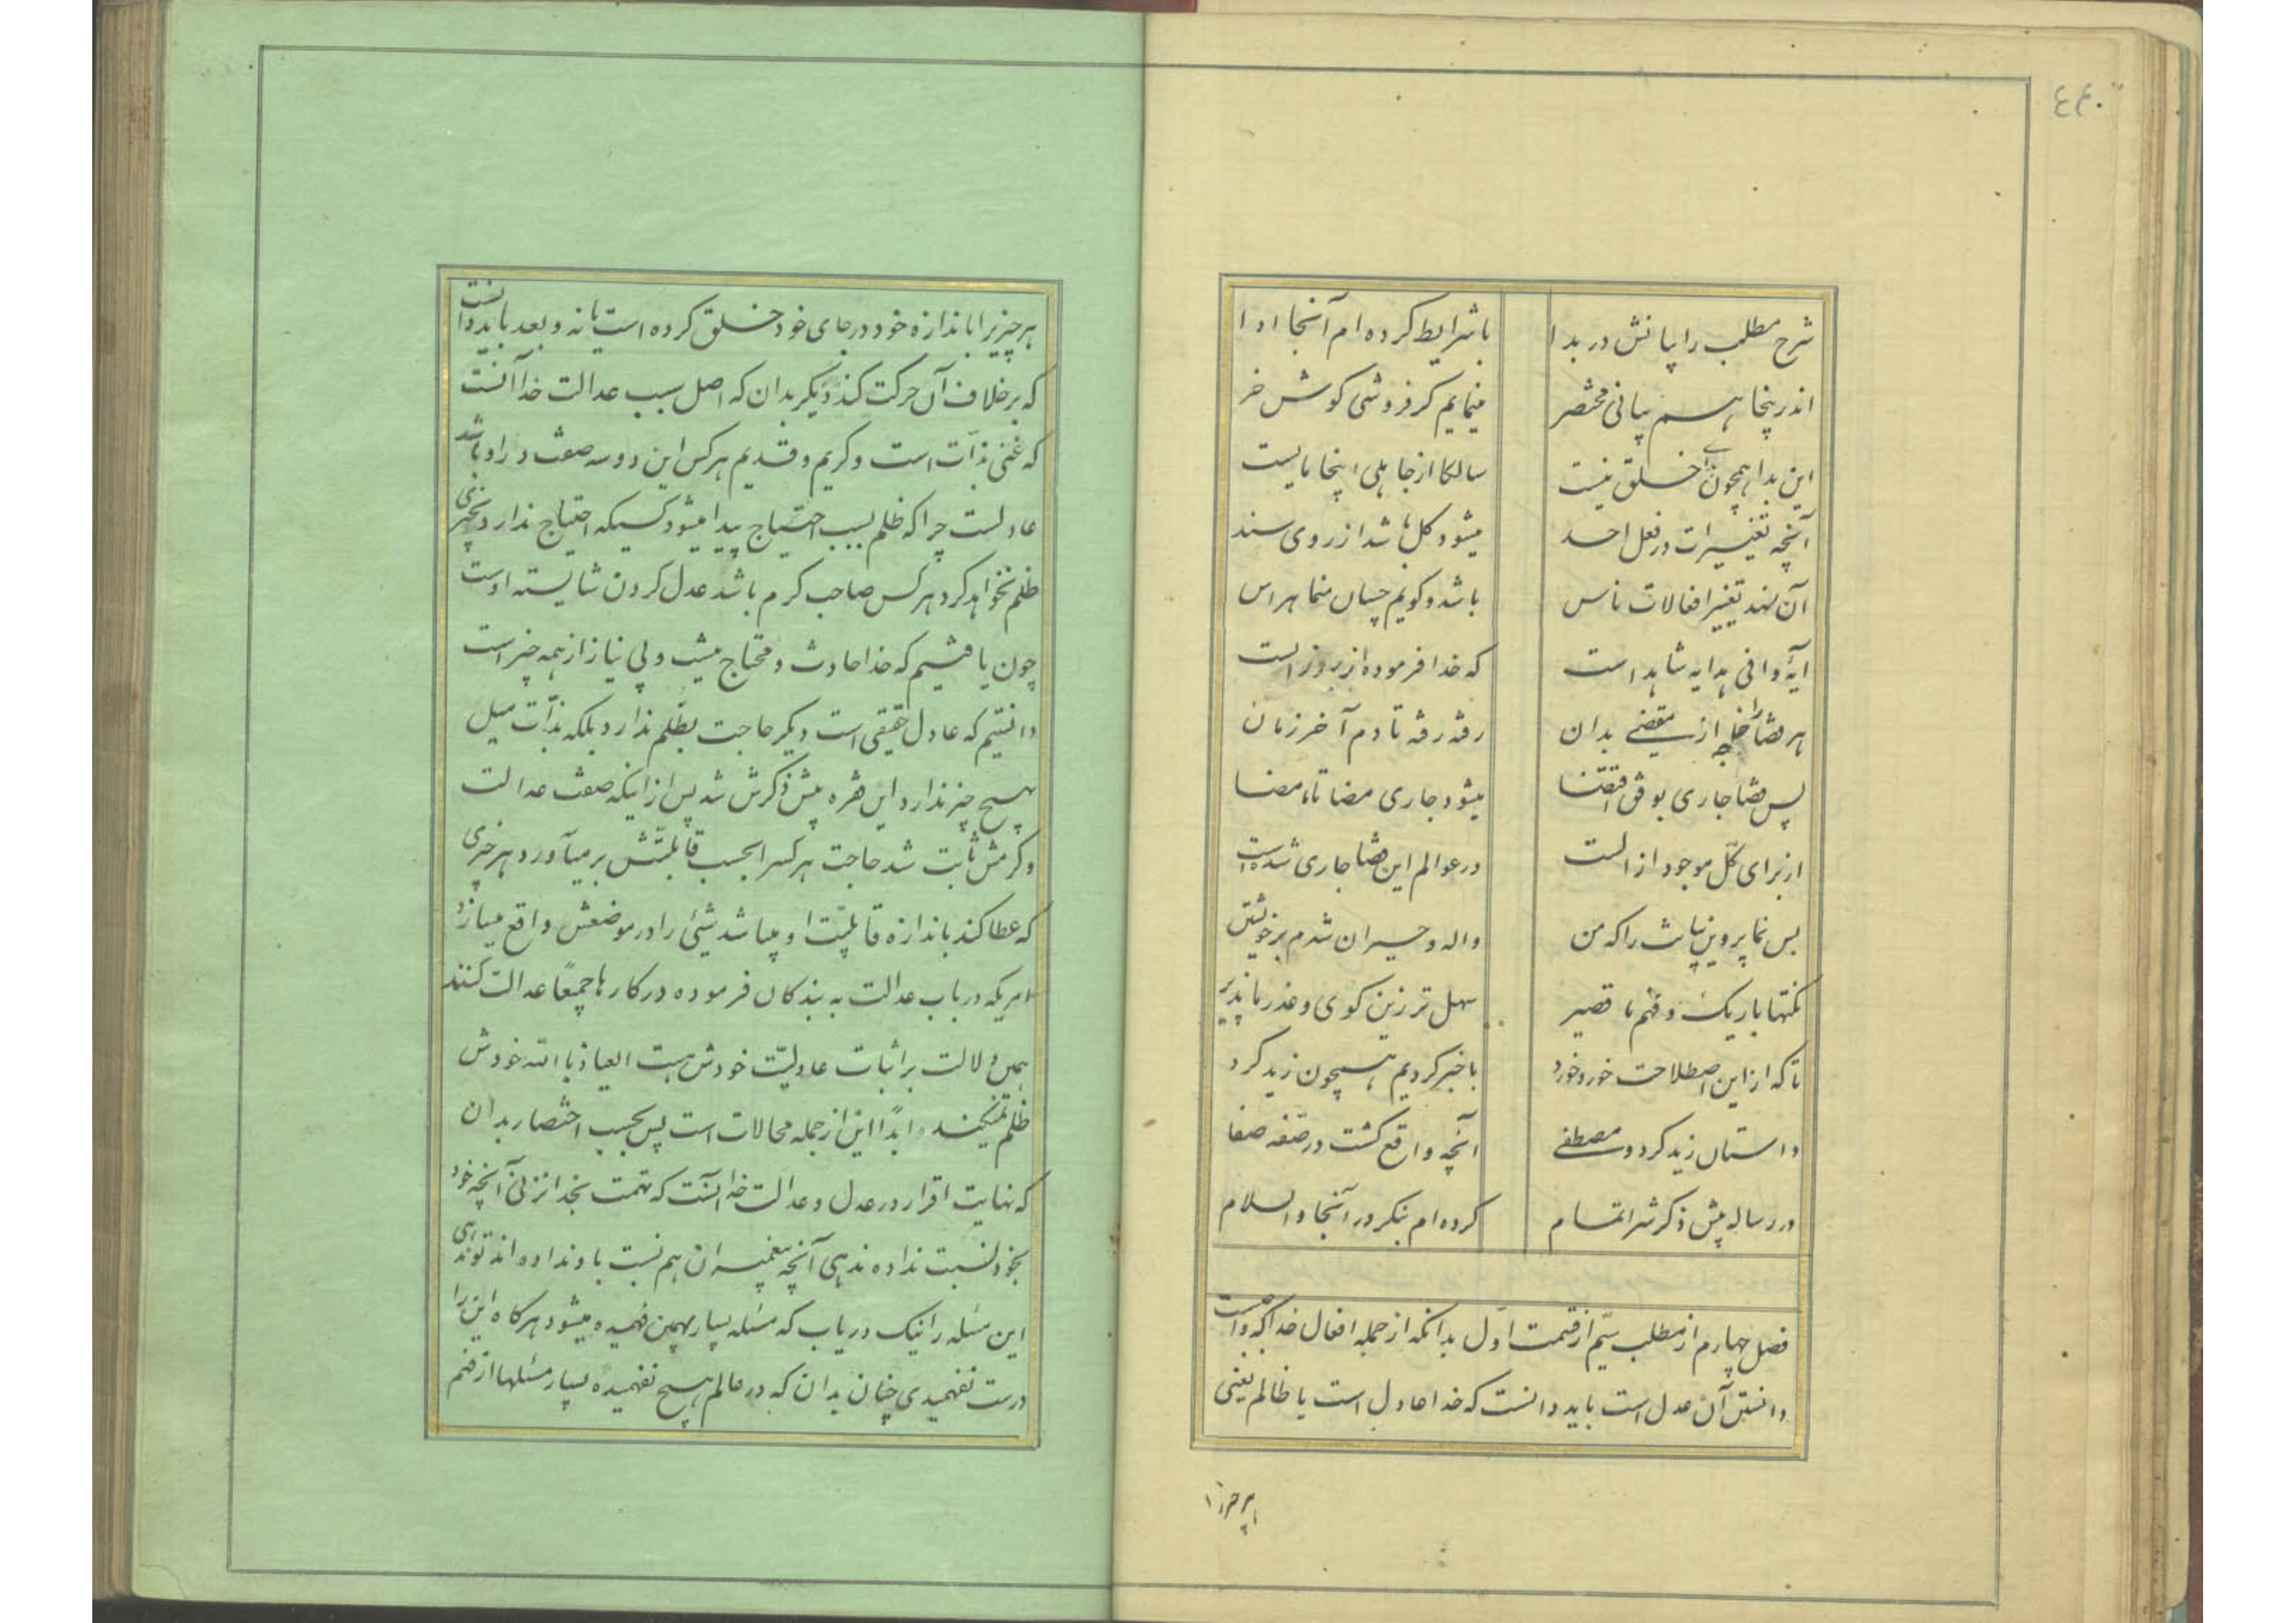 ۴۴۰
شرح مطلب را بیانش در بدا
با شرایط کرده‌ام آنجا ادا
اندرینجا هم بیانی مختصر
مینمایم کر فروشی کوش خر
این بدا همچون بدای خلق نیست
سالکا از جاهلی اینجا بایست
آنچه تغییرات در فعل احد
میشود کل باشد از روی سند
آن تغییر افعالات ناس
باشد و کویم چسان منما هراس
آیهٔ وافی هدایه شاهد است
که خدا فرموده از بروز الست
هر قضا را از مقتضی بدان
رفته رفته تا دم آخر زمان
پس قضا جاری بوفق اقتضا
میشود جاری مضا تا ما مضا
از برای کل موجود از الست
در عوالم این قضا جاری شده‌است
بس نما پروین بیانت را که من
واله و حیران شدم بر خویشتن
نکتها باریک و فهم ما قصیر
سهل‌تر زین کوی و عذر ما پذیر
تا که از این اصطلاحت خورد خورد
با خبر کردیم همچون زید کرد
داستان زید کرد و مصطفی
آنچه واقع کشت در صفه صفا
در رساله پیش ذکرش را تمام
کرده‌ام بنکر در آنجا والسلام
فصل چهارم از مطلب سیّم از قسمت اوّل بدانکه از جمله افعال خدا که واجبست
دانستن آن عدل است باید دانست که خدا عادل است یا ظالم یعنی
هر چیز را
هر چیزیرا باندازه خود در جای خود خلق کرده است یا نه و بعد باید دانست
که بر خلاف آن حرکت کند دیکر بدان که اصل سبب عدالت خدا آنست
که غنی بذات است و کریم و قدیم هر کس این دو سه صفت در او باشد
عادلست چرا که ظلم بسبب احتیاج پیدا میشود کسیکه احتیاج ندارد بچیزی
ظلم نخواهد کرد هر کس صاحب کرم باشد عدل کردن شایسته اوست
چون یافتیم که خدا حادث و محتاج نیست و بی نیاز از همه چیز است
دانستیم که عادل حقیقی است دیکر حاجت بظلم ندارد بلکه بذات میل
بهیچ چیز ندارد این فقره پیش ذکرش شد پس از اینکه صفت عدالت
و کرمش ثابت شد حاجت هر کسرا بحسب قابلیّتش بر میآورد و هر چیزی
که عطا کند باندازه قابلیّت او میباشد شیئی را در موضعش واقع میسازد
امریکه در باب عدالت به بندکان فرموده در کارها جمیعًا عدالت کنند
همین دلالت بر اثبات عادلیّت خودش هست العیاذ بالله خودش
ظلم نمیکند ابدًا این از جمله محالات است پس بحسب اختصار بدان
که نهایت اقرار در عدل و عدالت خدا آنست که تهمت بخدا نزنی آنچه خود
بخود نسبت نداده ندهی آنچه پیغمبران هم نسبت باو نداده‌اند تو ندهی
این مسئله را نیک دریاب که مسئله بسیار بهمین فهمیده میشود هر کاه این را
درست نفهمیدی چنان بدان که در عالم هیچ نفهمیده بسیار مسئلها از فهم